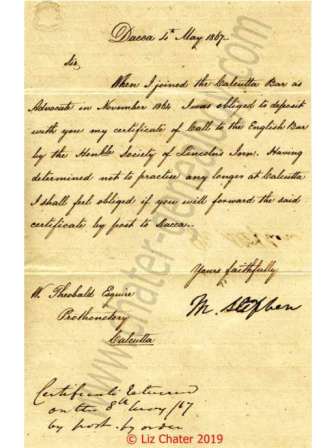 Dacca 4th May 1867.
Sir,
When I joined the Calcutta Bar as
Advocate in November 1864. I was obliged to deposit
with you my certificate of Call to the English Bar
by the Honble Society of Lincoln's Inn. Having
determined not to practise any longer at Calcutta
I shall feel obliged if you will forward the said
certificate by post to Dacca.
Yours faithfully
M. Stephen
W. Theobald Esquire
Prothonotory
Calcutta
Certificate returned
on the 8th May /67
by post by order
© Liz Chater 2019